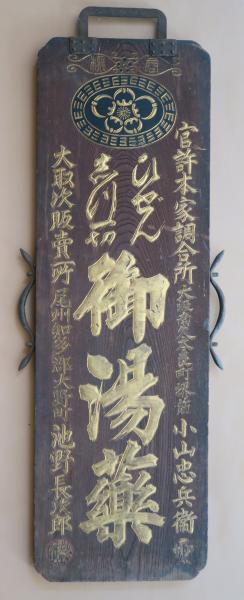 官許本家調合所
小山忠兵衞
ひぜん
志つ一切
御湯藥
大取次販賣所
尾州知多郡大野町
池野長次郎